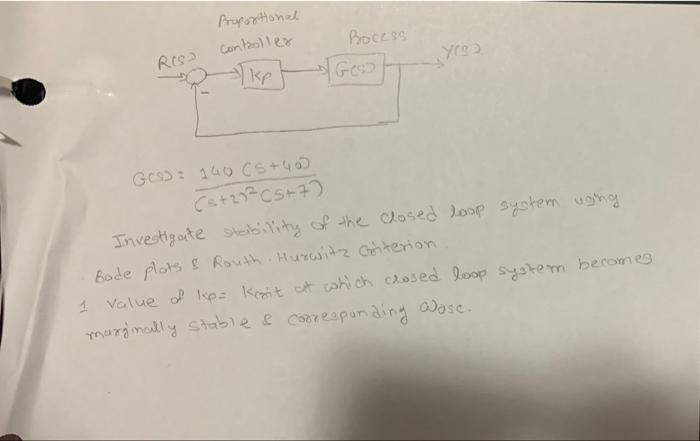 Proportional
controller
Process
R(s)
Kp
G(s)
Y(s)
-
G(s) = 140 (s+40)
(s+2)² (s+7)
Investigate stability of the closed loop system using
Bode plots & Routh-Hurwitz Criterion.
1 Value of kp = Kcrit at which closed loop system becomes
marginally stable & corresponding ωosc.